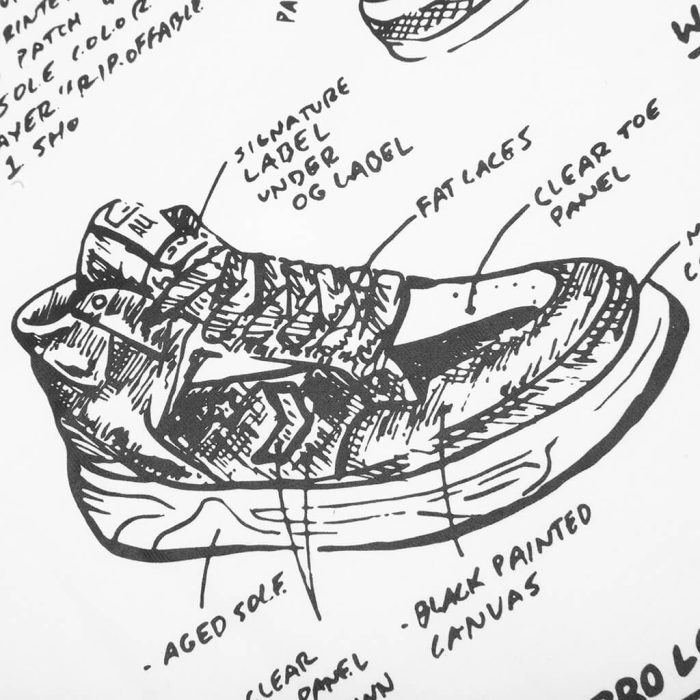 PATCH
SOLE COLOR
AYER "RIP.OFFABLE
1 SHO
SIGNATURE
LABEL
UNDER
OG LABEL
FAT LACES
CLEAR TOE
PANEL
- AGED SOLE
CLEAR
PANEL
- BLACK PAINTED
CANVAS